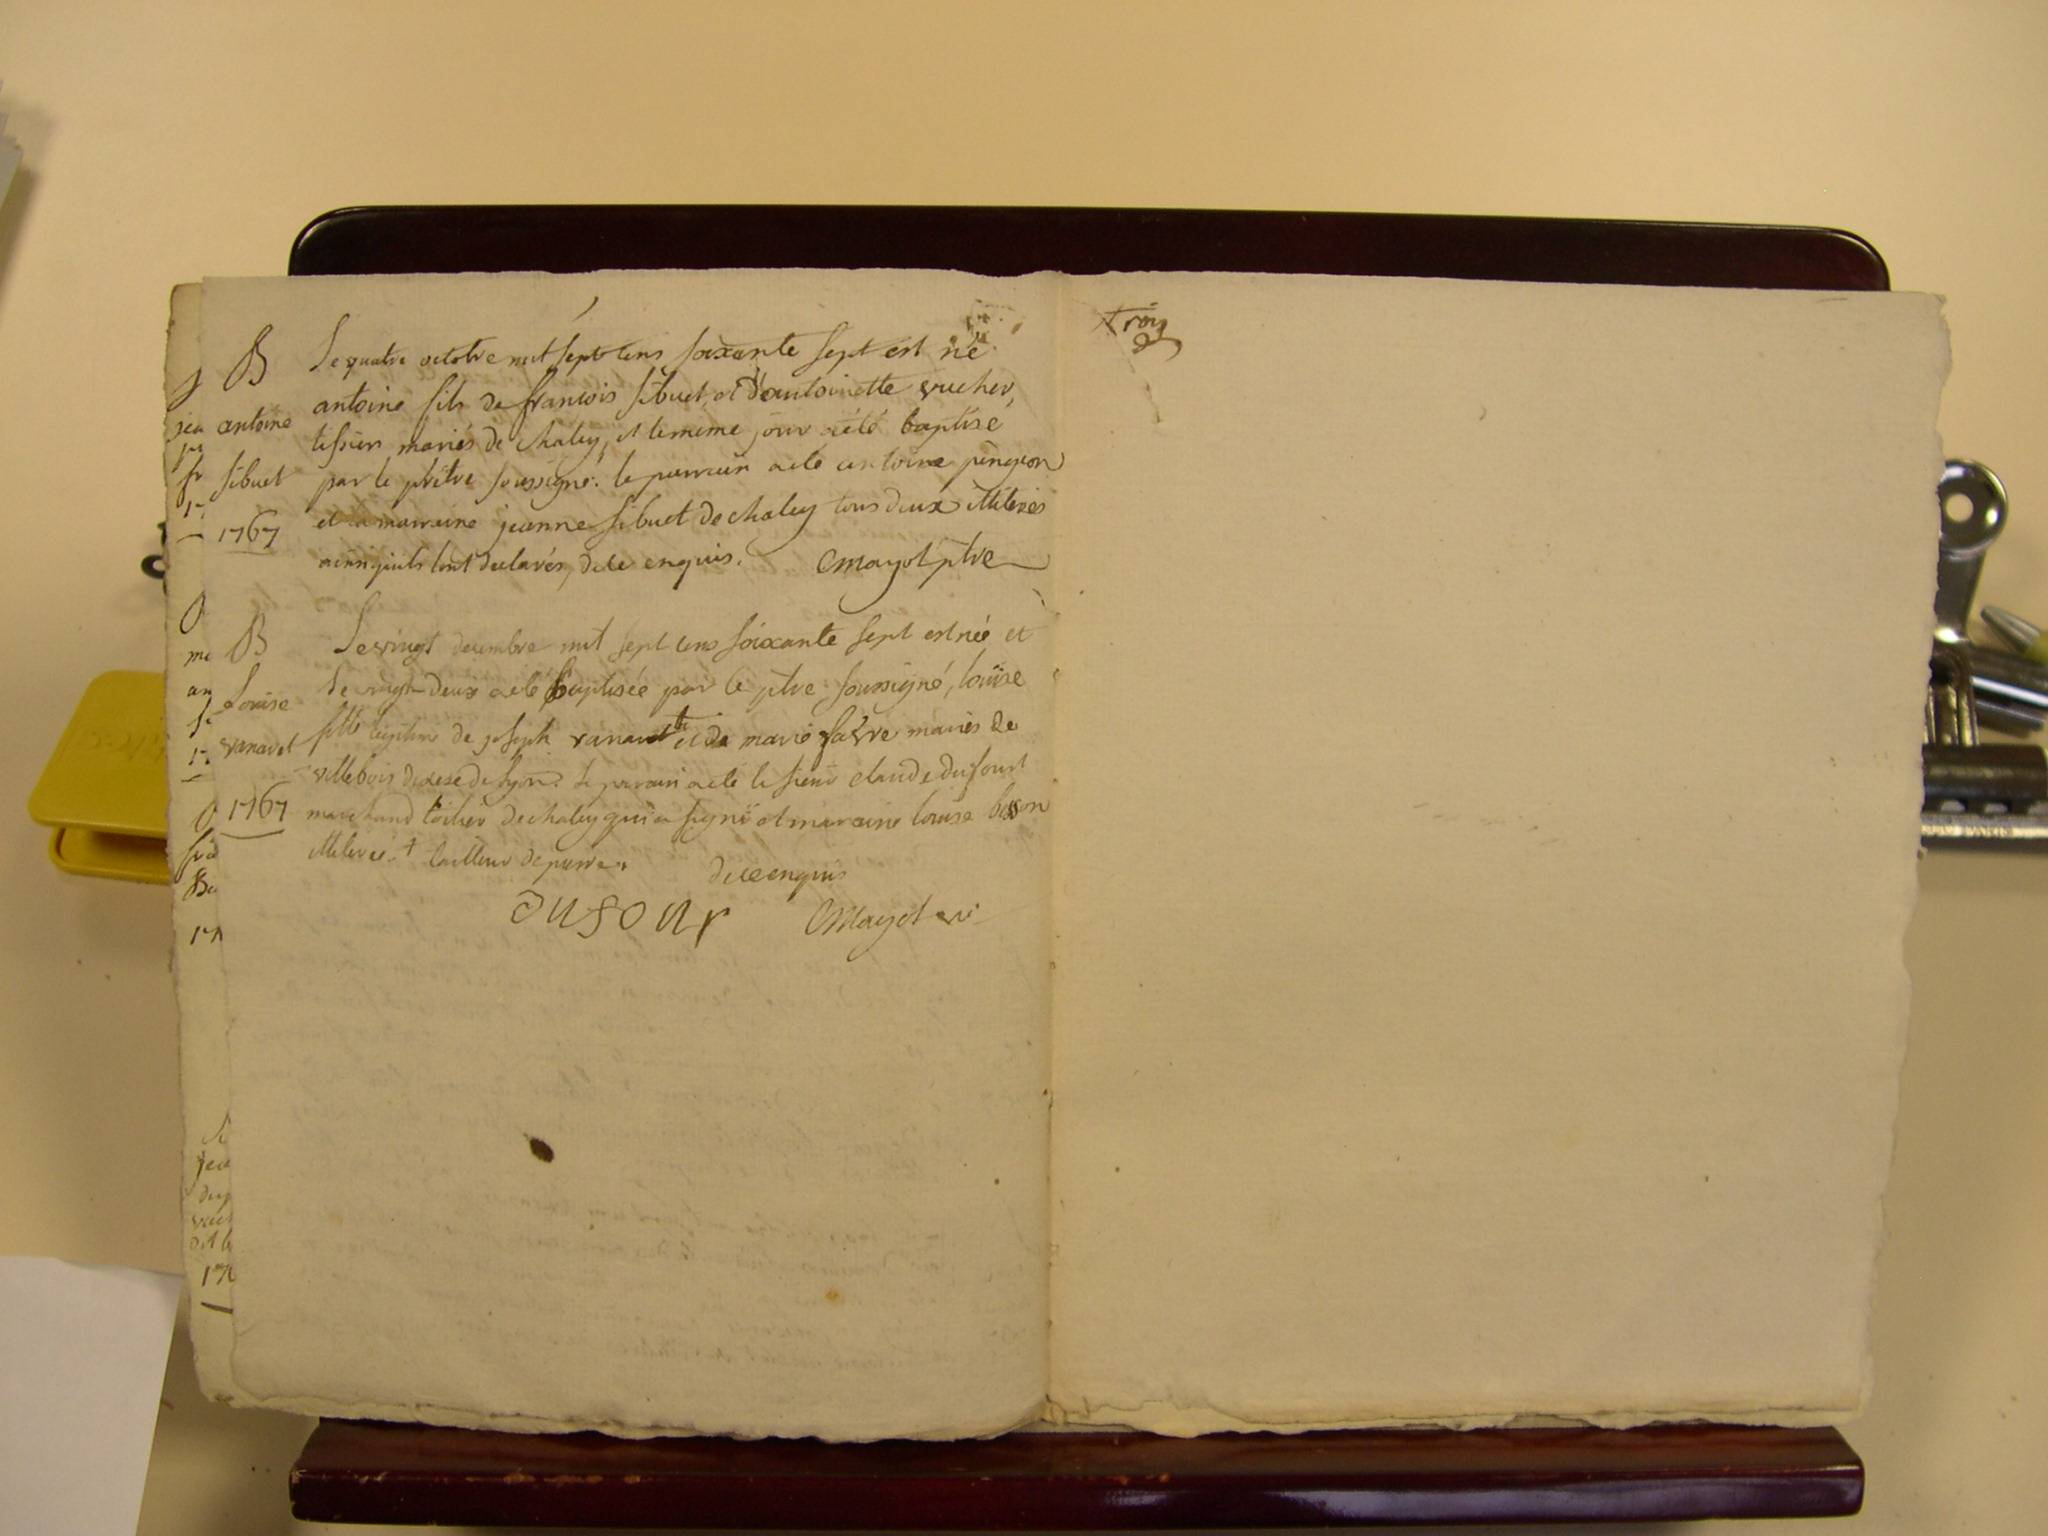 B
antoine
sibuet
1767
Le quatre octobre mil sept cens soixante sept est né
antoine fils de francois sibuet, et d'antoinette vucher,
tissiers mariés de chaley, et le meme jour a été baptisé
par le prêtre soussigné. le parrain a été antoine pingeon
et la marraine jeanne sibuet de chaley tous deux illiterés
ainsi qu'ils l'ont declarés, de ce enquis. CMayot ptre
B
Louise
vanavet
1767
Le vingt decembre mil sept cens soixante sept est née et
le vingt deux a été baptisée par le ptre soussigné, louise
fille legitime de joseph et de marie favre mariés de
villebois diocese de lyon. le parrain a été le sieur claude dufour
marchand toilier de chaley qui a signé et marraine louise
illiterée. + tailleur de pierre. de ce enquis
DUFOUR CMayot
trois